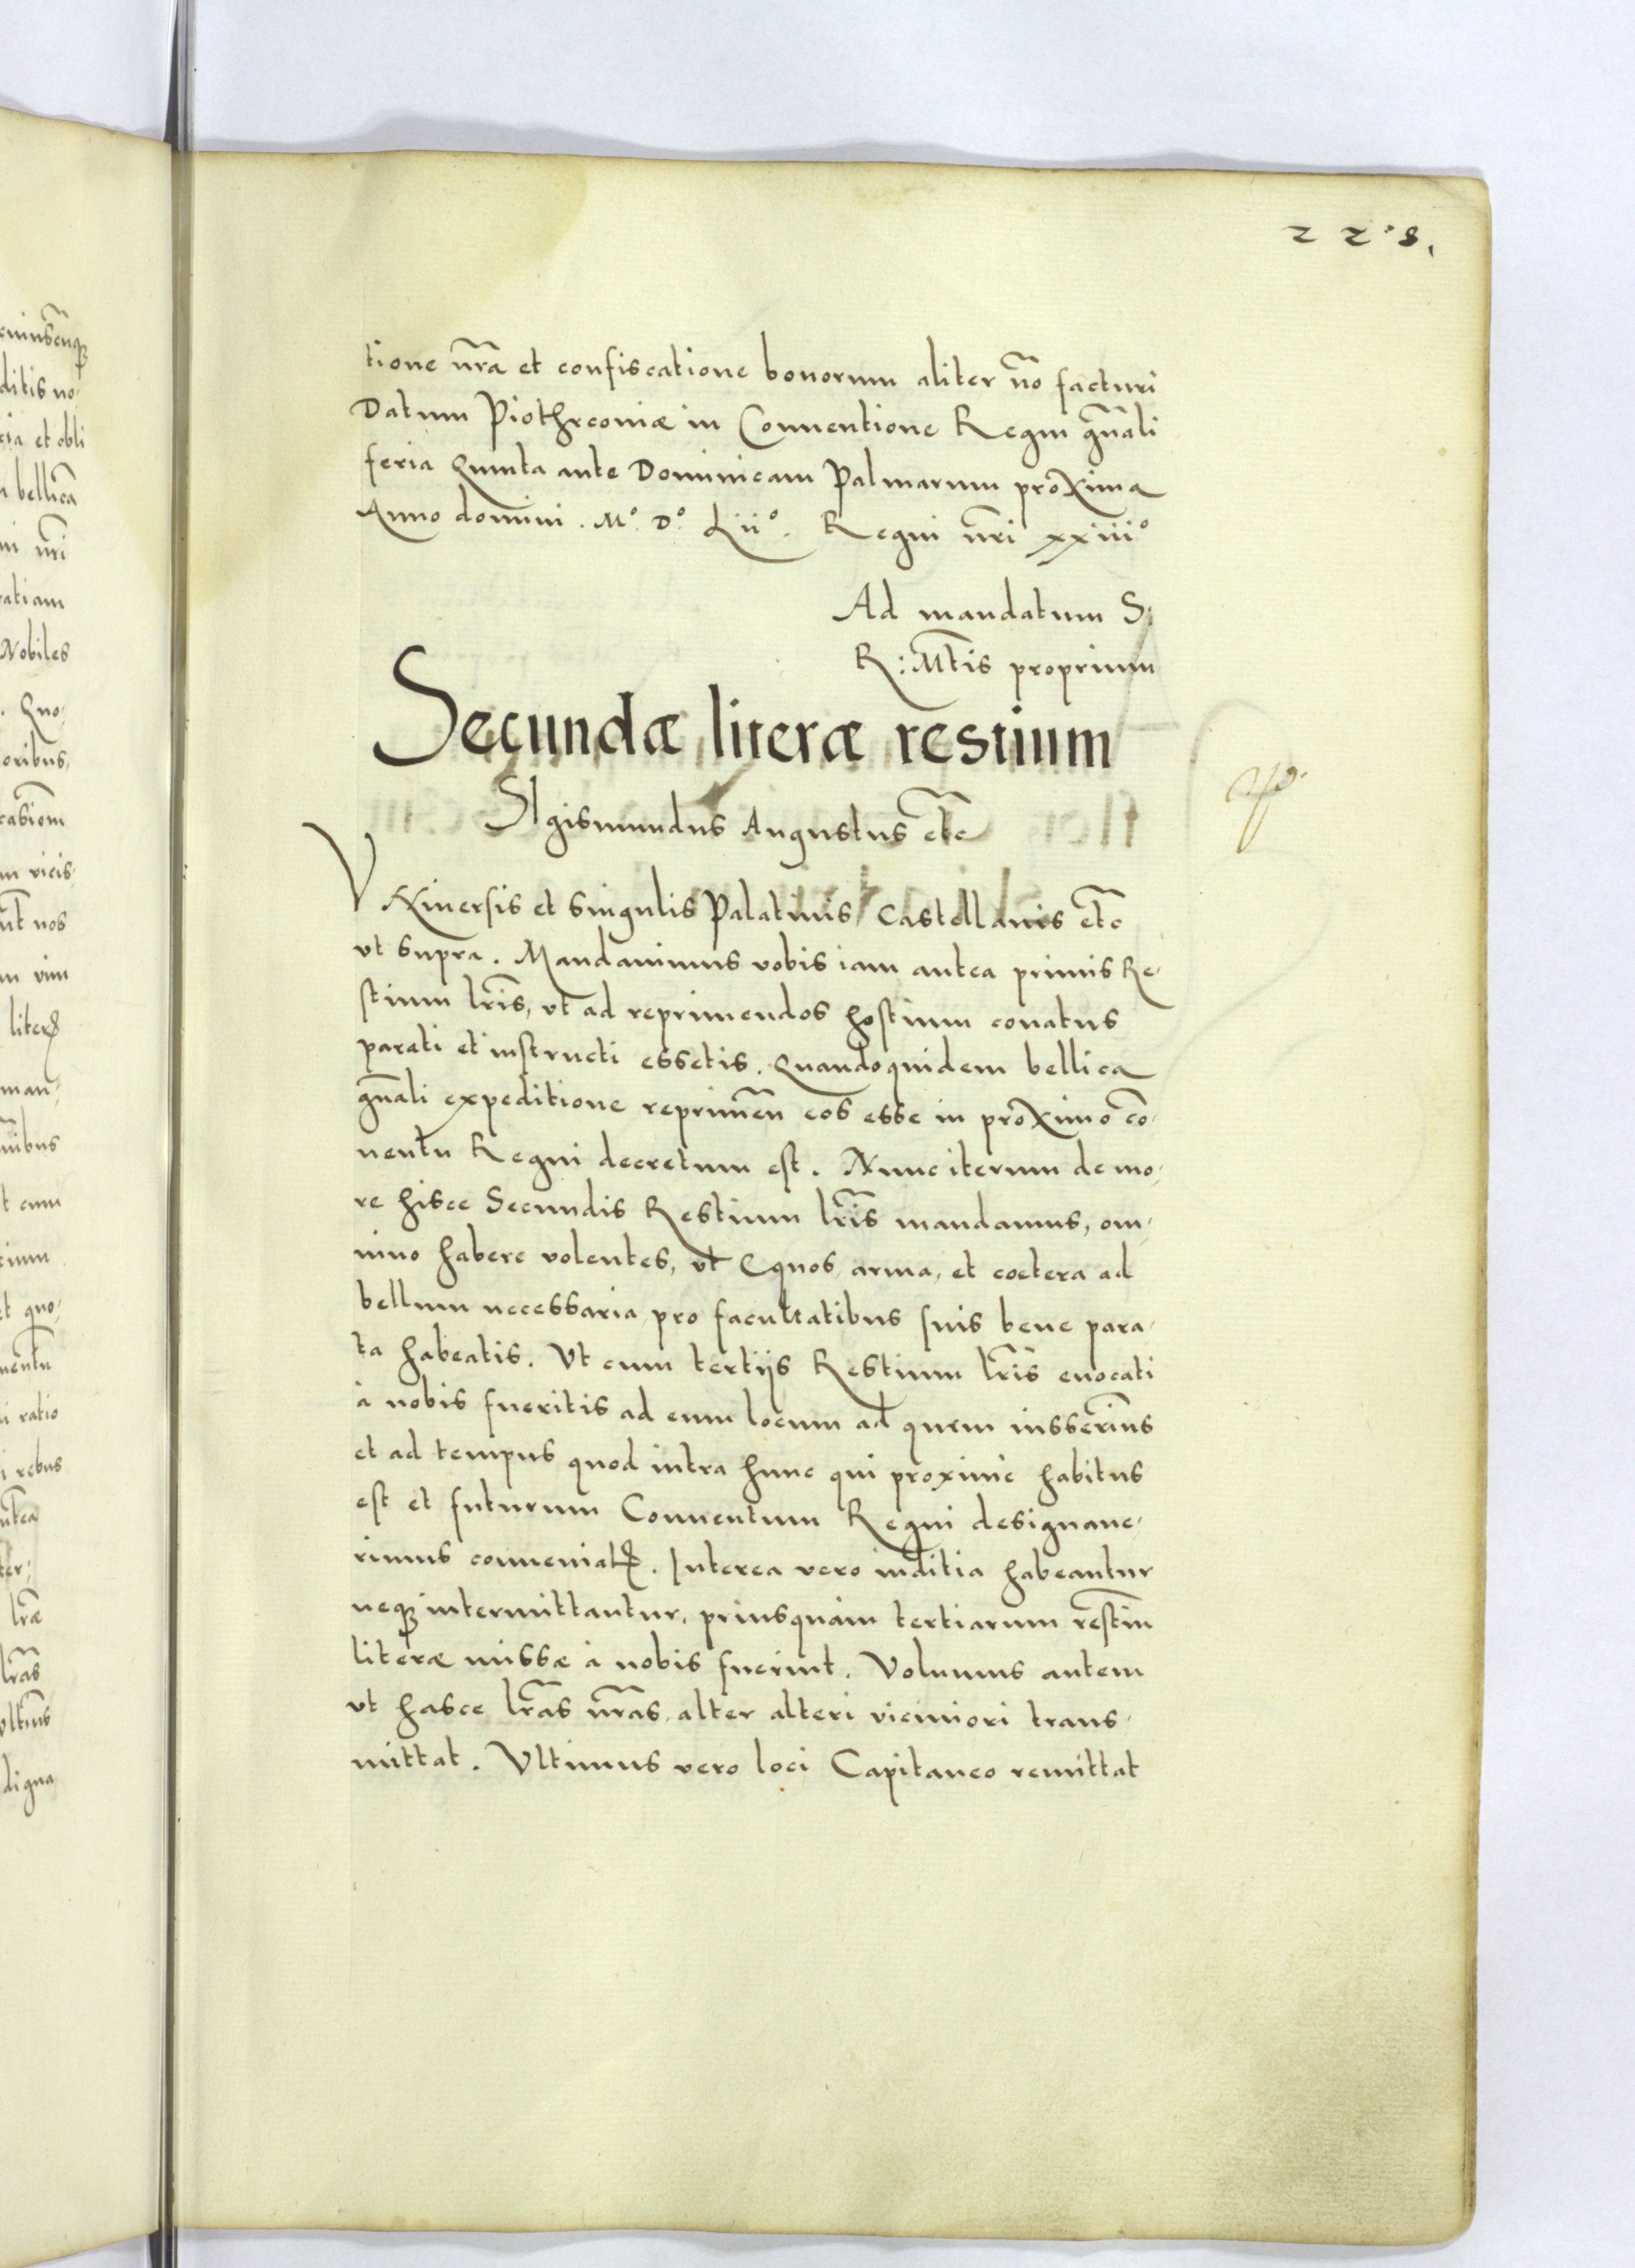 228.
tione nr̃a et confiscatione bonorum aliter nõ facturi
Datum Piothrcoviæ in Conuentione Regni gñali
feria Quinta ante Dominicam Palmarum proxima
Anno domini. Mº. Dº. Liiº. Regni nr̃i xxiiiº
Ad mandatum S:
R: Mt̃is proprium
Secundæ literæ restium
SIgismundus Augustus etc̃
VNiuersis et singulis Palatinis, Castellanis etc̃
vt supra. Mandauimus vobis iam antea primis Re-
stium lr̃is, vt ad reprimendos hostium conatus
parati et instructi essetis. Quandoquidem bellica
gñali expeditione reprimẽn eos esse in proximo cõ-
uentu Regni decretum est. Nunc iterum de mo-
re hisce Secundis Restium lr̃is mandamus, om-
nino habere volentes, vt Equos, arma, et coetera ad
bellum necessaria, pro facultatibus suis bene para-
ta habeatis. Vt cum tertijs Restium lr̃is euocati
à nobis fueritis ad eum locum ad quem iusserim̃s
et ad tempus quod intra hunc qui proximè habitus
est et futurum Conuentum Regni designaue-
rimus conueniatꝭ. Interea vero inditia habeantur
neqꝫ intermittantur, priusquàm tertiarum restiũ
literæ missæ à nobis fuerint. Volumus autem
vt hasce lr̃as nr̃as, alter alteri viciniori trans-
mittat. Vltimus vero loci Capitaneo remittat